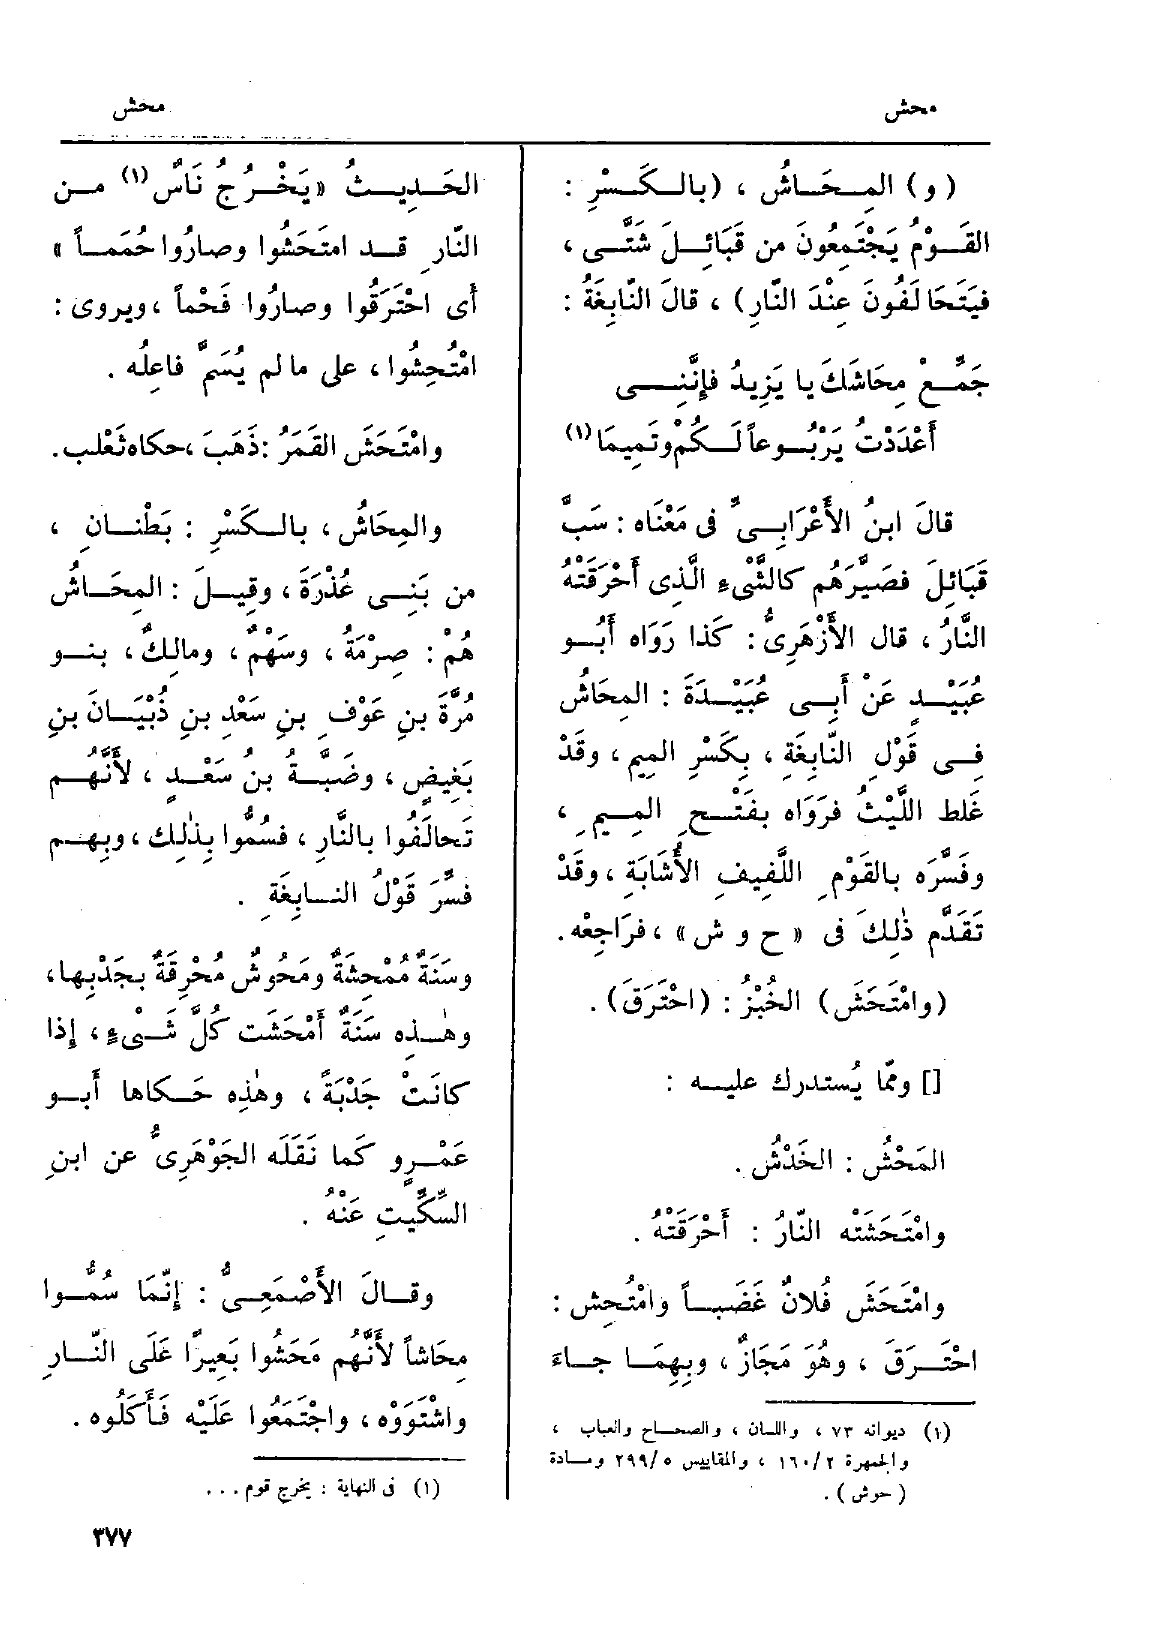 محش
محش
(و) المِحَاشُ ، (بالكَسْرِ :
القَوْمُ يَجْتَمِعُونَ من قَبَائِلَ شَتَّى ،
فيَتَحَالَفُونَ عِنْدَ النَّارِ) ، قالَ النَّابِغَةُ :
جَمِّعْ مِحَاشَكَ يا يَزِيدُ فإِنَّنِى
أَعْدَدْتُ يَرْبُوعاً لَكُمْ وتَمِيمَا (١)
قالَ ابنُ الأَعْرَابِىِّ فى مَعْنَاه : سَبَّ
قَبَائِلَ فصَيَّرَهُم كالشَّىْءِ الَّذِى أَحْرَقَتْهُ
النَّارُ ، قال الأَزْهَرِىُّ : كَذا رَوَاه أَبُو
عُبَيْدٍ عَنْ أَبِى عُبَيْدَةَ : المِحَاشُ
فِى قَوْلِ النَّابِغَةِ ، بِكَسْرِ المِيم ، وقَدْ
غَلط اللَّيْثُ فرَوَاه بفَتْحِ المِيمِ ،
وفَسَّرَه بالقَوْمِ اللَّفِيفِ الأُشَابَةِ ، وقَدْ
تَقَدَّم ذٰلِكَ فى « ح و ش » ، فرَاجِعْه .
(وامْتَحَشَ) الخُبْزُ : (احْتَرَقَ) .
[] وممّا يُستدرك عليه :
المَحْشُ : الخَدْشُ .
وامْتَحَشَتْه النّارُ : أَحْرَقَتْهُ .
وامْتَحَشَ فُلانٌ غَضَباً وامْتُحِش :
احْتَرَقَ ، وهُوَ مَجَازٌ ، وبِهِمَا جاءَ
(١) ديوانه ٧٣ ، واللسان ، والصحاح والعباب ،
والجمهرة ١٦٠/٢ ، والمقاييس ٢٩٩/٥ ومادة
(حوش) .
الحَدِيثُ « يَخْرُجُ نَاسٌ (١) من
النّارِ قد امتَحَشُوا وصارُوا حُمَماً »
أَى احْتَرَقُوا وصارُوا فَحْماً ، ويروى :
امْتُحِشُوا ، على ما لم يُسَمَّ فاعِلُه .
وامْتَحَشَ القَمَرُ : ذَهَبَ ، حكاه ثَعْلب .
والمِحَاشُ ، بالكَسْرِ : بَطْنانِ ،
من بَنِى عُذْرَةَ ، وقِيلَ : المِحَاشُ
هُمْ : صِرْمَةُ ، وسَهْمٌ ، ومالِكٌ ، بنو
مُرَّةَ بنِ عَوْفِ بنِ سَعْدِ بنِ ذُبْيَانَ بنِ
بَغِيضٍ ، وضَبَّةُ بنُ سَعْدٍ ، لأَنَّهُم
تَحالَفُوا بالنَّارِ ، فسُمُّوا بِذٰلِك ، وبِهِم
فسَّرَ قَوْلُ النابِغَةِ .
وسَنَةٌ مُمْحِشَةٌ ومَحُوشٌ مُحْرِقَةٌ بجَدْبِها ،
وهٰذِه سَنَةٌ أَمْحَشَت كُلَّ شَىْءٍ ، إِذا
كانَتْ جَدْبَةً ، وهٰذِه حَكاها أَبو
عَمْرٍو كَما نَقَلَه الجَوْهَرِىُّ عن ابنِ
السِّكِّيتِ عَنْهُ .
وقالَ الأَصْمَعِىُّ : إِنَّمَا سُمُّوا
مِحَاشاً لأَنَّهُم مَحَشُوا بَعِيرًا عَلَى النَّارِ
واشْتَوَوْه ، واجْتَمَعُوا عَلَيْه فَأَكَلُوه .
(١) فى النهاية : يخرج قوم ...
٣٧٧